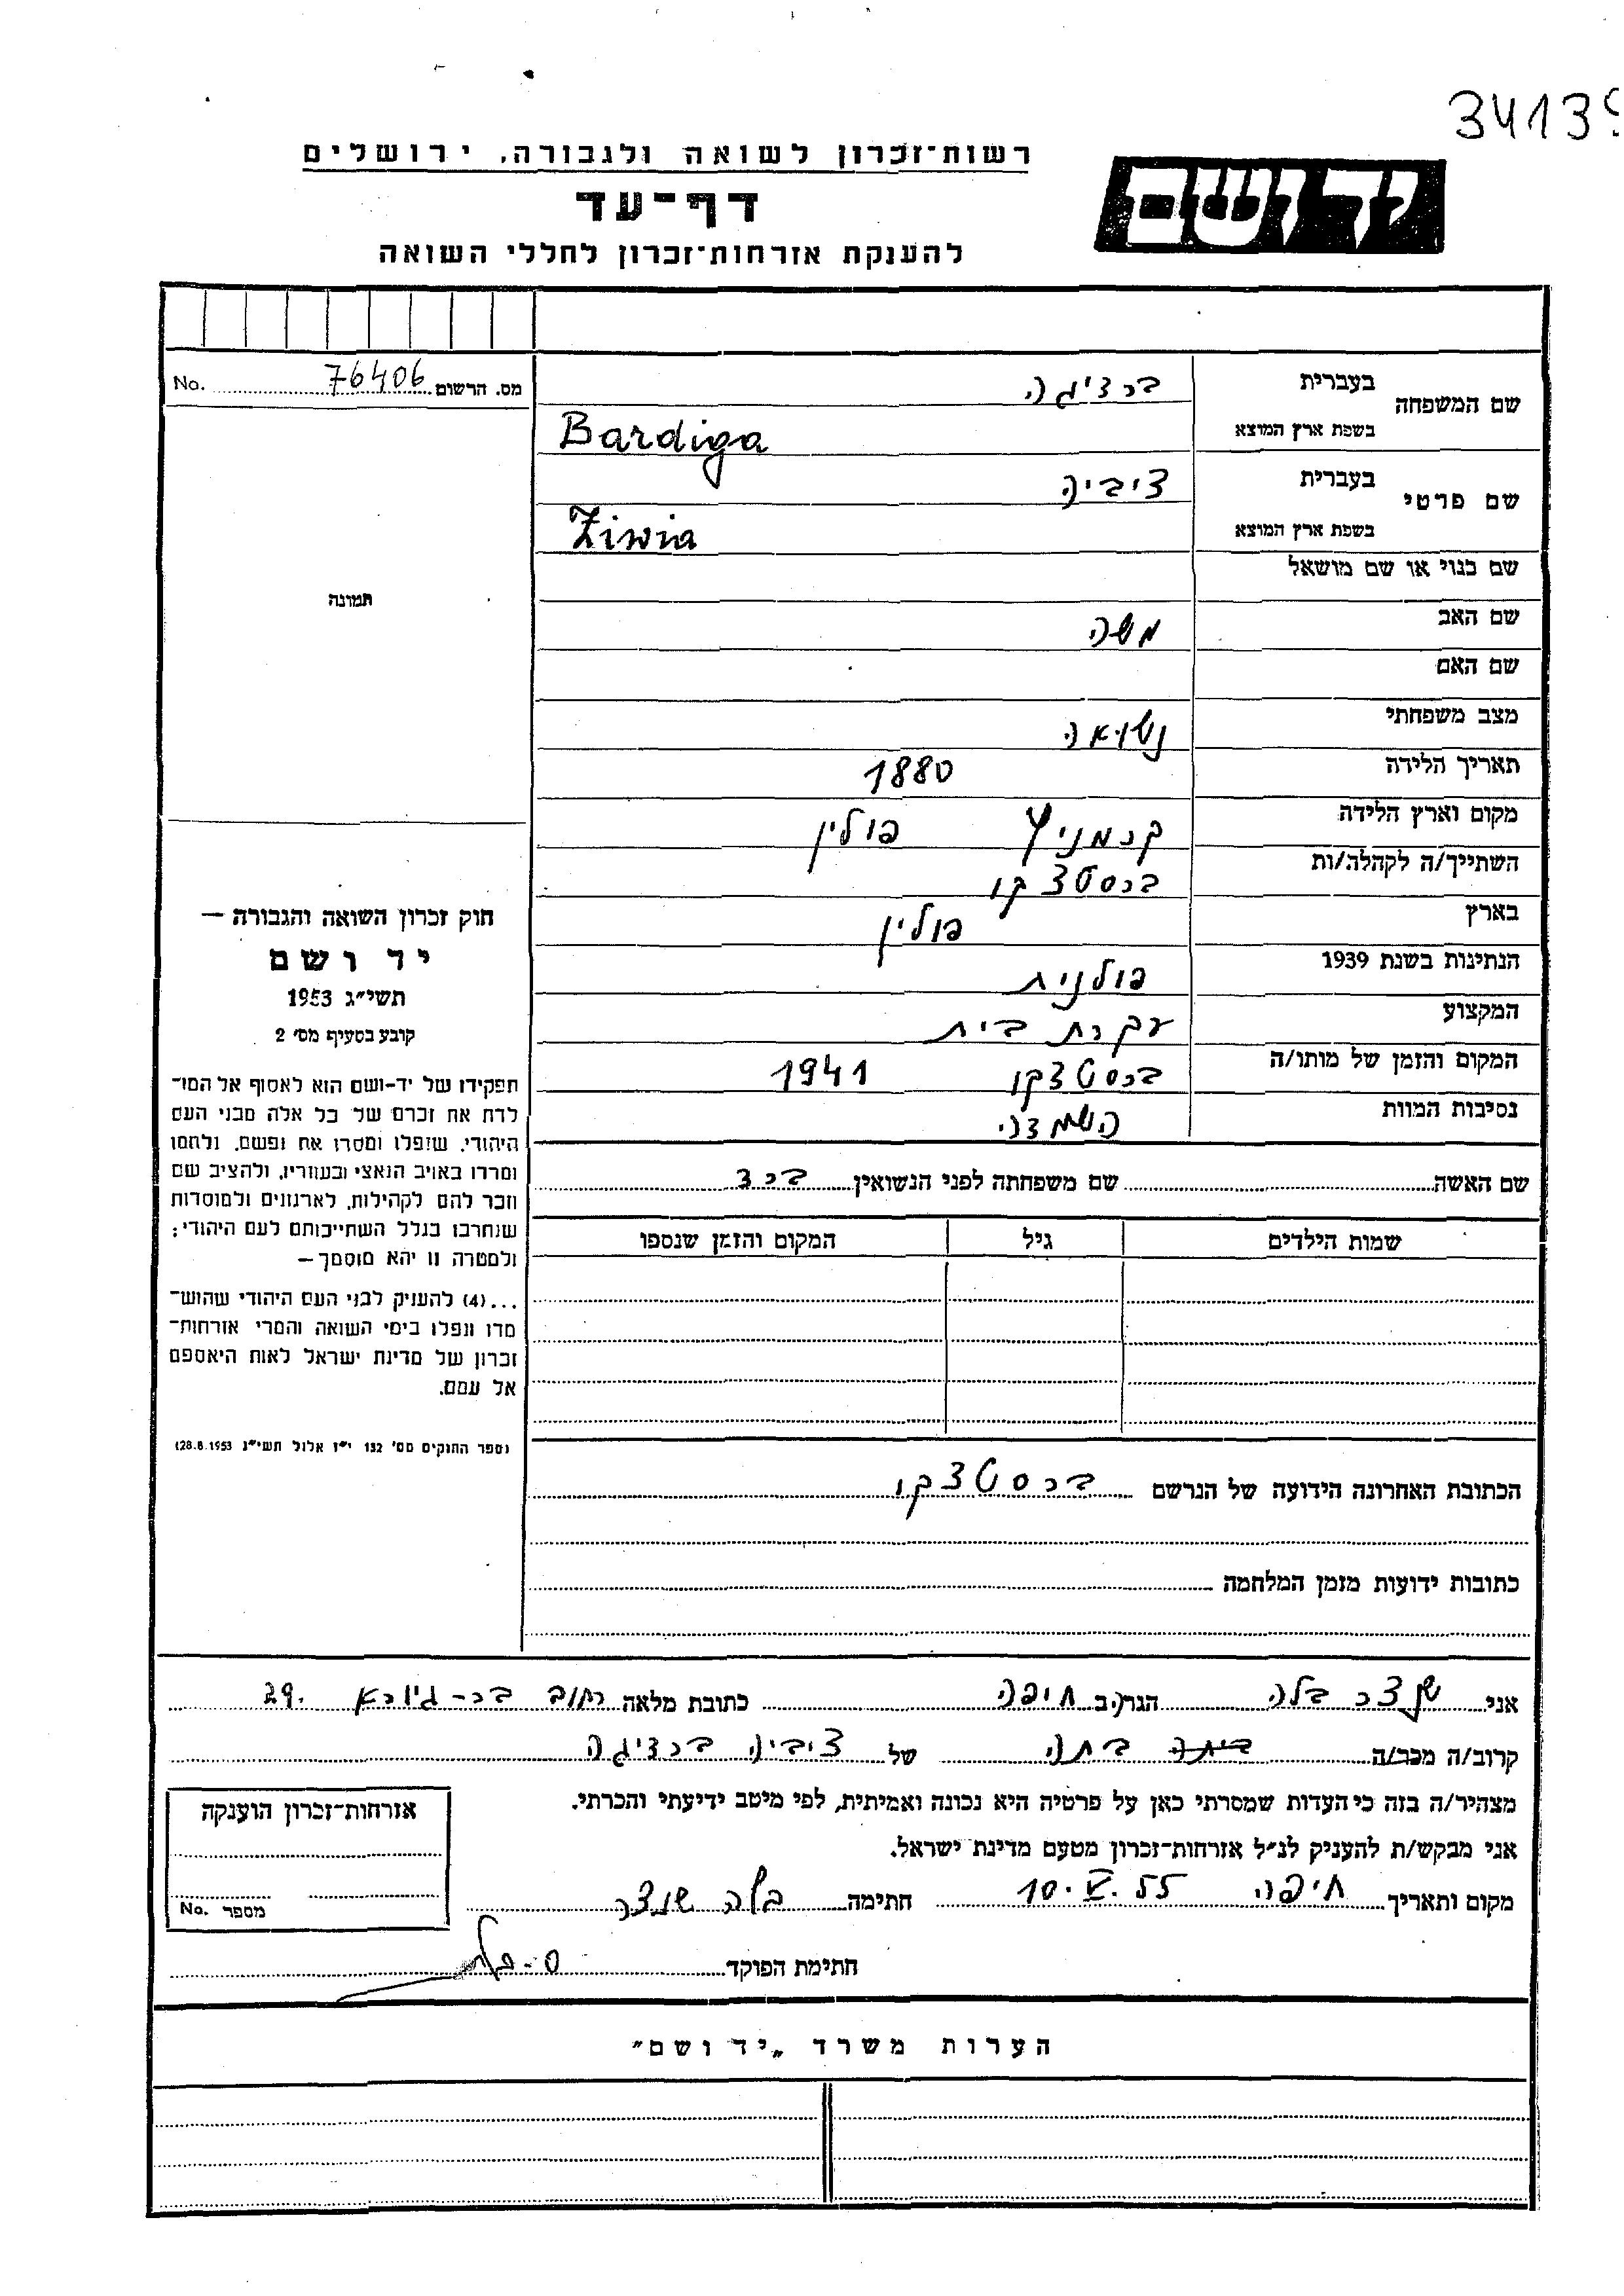 34139
רשות־זכרון לשואה ולגבורה, ירושלים
יד ושם
דף־עד
להענקת אזרחות־זכרון לחללי השואה
No. 76406 מס. הרשום
שם המשפחה בעברית ברדיגה
בשפת ארץ המוצא Bardiga
שם פרטי בעברית ציביה
בשפת ארץ המוצא Ziwia
שם כנוי או שם מושאל
שם האב משה
שם האם
מצב משפחתי נשואה
תאריך הלידה 1880
מקום וארץ הלידה קרמניץ פולין
השתייך/ה לקהלה/ות ברסטצקו
בארץ פולין
הנתינות בשנת 1939 פולנית
המקצוע עקרת בית
המקום והזמן של מותו/ה ברסטצקו 1941
נסיבות המוות
שם האשה שם משפחתה לפני הנשואין
שמות הילדים גיל המקום והזמן שנספו
הכתובת האחרונה הידועה של הנרשם ברסטצקו
כתובות ידועות מזמן המלחמה
תמונה
חוק זכרון השואה והגבורה —
יד ושם
תשי״ג 1953
קובע בסעיף מס׳ 2
תפקידו של יד-ושם הוא לאסוף אל המו־
לדת את זכרם של כל אלה מבני העם
היהודי, שנפלו ומסרו את נפשם, נלחמו
ומרדו באויב הנאצי ובעוזריו, ולהציב שם
וזכר להם לקהילות, לארגונים ולמוסדות
שנחרבו בגלל השתייכותם לעם היהודי;
ולמטרה זו יהא מוסמך —
...(4) להעניק לבני העם היהודי שהוש־
מדו ונפלו בימי השואה והמרי אזרחות־
זכרון של מדינת ישראל לאות היאספם
אל עמם.
(ספר החוקים מס׳ 132 י״ז אלול תשי״ג 28.8.1953)
אני שנצר בלה הגר/ה ב חיפה כתובת מלאה רחוב בר-גיורא 29.
קרוב/ה מכב/ה בתה של ציביה ברדיגה
מצהיר/ה בזה כי העדות שמסרתי כאן על פרטיה היא נכונה ואמיתית, לפי מיטב ידיעתי והכרתי.
אני מבקש/ת להעניק לנ״ל אזרחות־זכרון מטעם מדינת ישראל.
מקום ותאריך חיפה 10.V.55 חתימה בלה שנצר
חתימת הפוקד
אזרחות־זכרון הוענקה
No. מספר
הערות משרד „יד ושם״